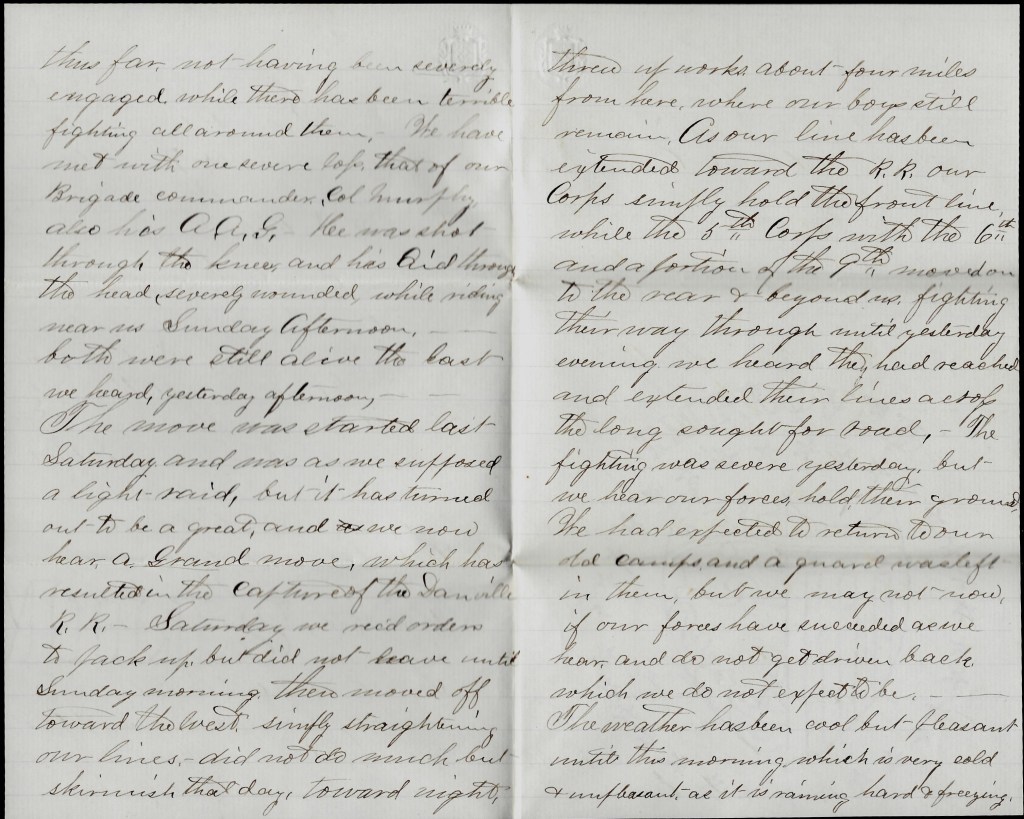 thus far, not having been severely
engaged while there has been terrible
fighting all around them, - We have
met with one severe loss, that of our
Brigade commander, Col Murphy
also his A.A.G. - He was shot
through the knee, and his Aid through
the head, severely wounded, while riding
near us Sunday Afternoon, - -
both were still alive the last
we heard, yesterday afternoon, - -
The move was started last
Saturday, and was as we supposed
a light raid, but it has turned
out to be a great, and as we now
hear, a Grand move, which has
resulted in the Capture of the Danville
R. R. - Saturday we recd orders
to pack up, but did not leave until
Sunday morning, then moved off
toward the West, simply straightening
our lines, - did not do much but
skirmish that day, toward night,
threw up works about four miles
from here, where our boys still
remain, As our line has been
extended toward the R. R. our
Corps simply hold the front line,
while the 5th Corps with the 6th
and a portion of the 9th moved on
to the rear & beyond us, fighting
their way through until yesterday
evening we heard they had reached
and extended their lines across
the long sought for road, - The
fighting was severe yesterday, but
we hear our forces hold their ground,
We had expected to return to our
old camps, and a guard was left
in them, but we may not now,
if our forces have succeeded as we
hear, and do not get driven back
which we do not expect to be, -
The weather has been cool but pleasant
until this morning, which is very cold
& unpleasant, as it is raining hard & freezing,